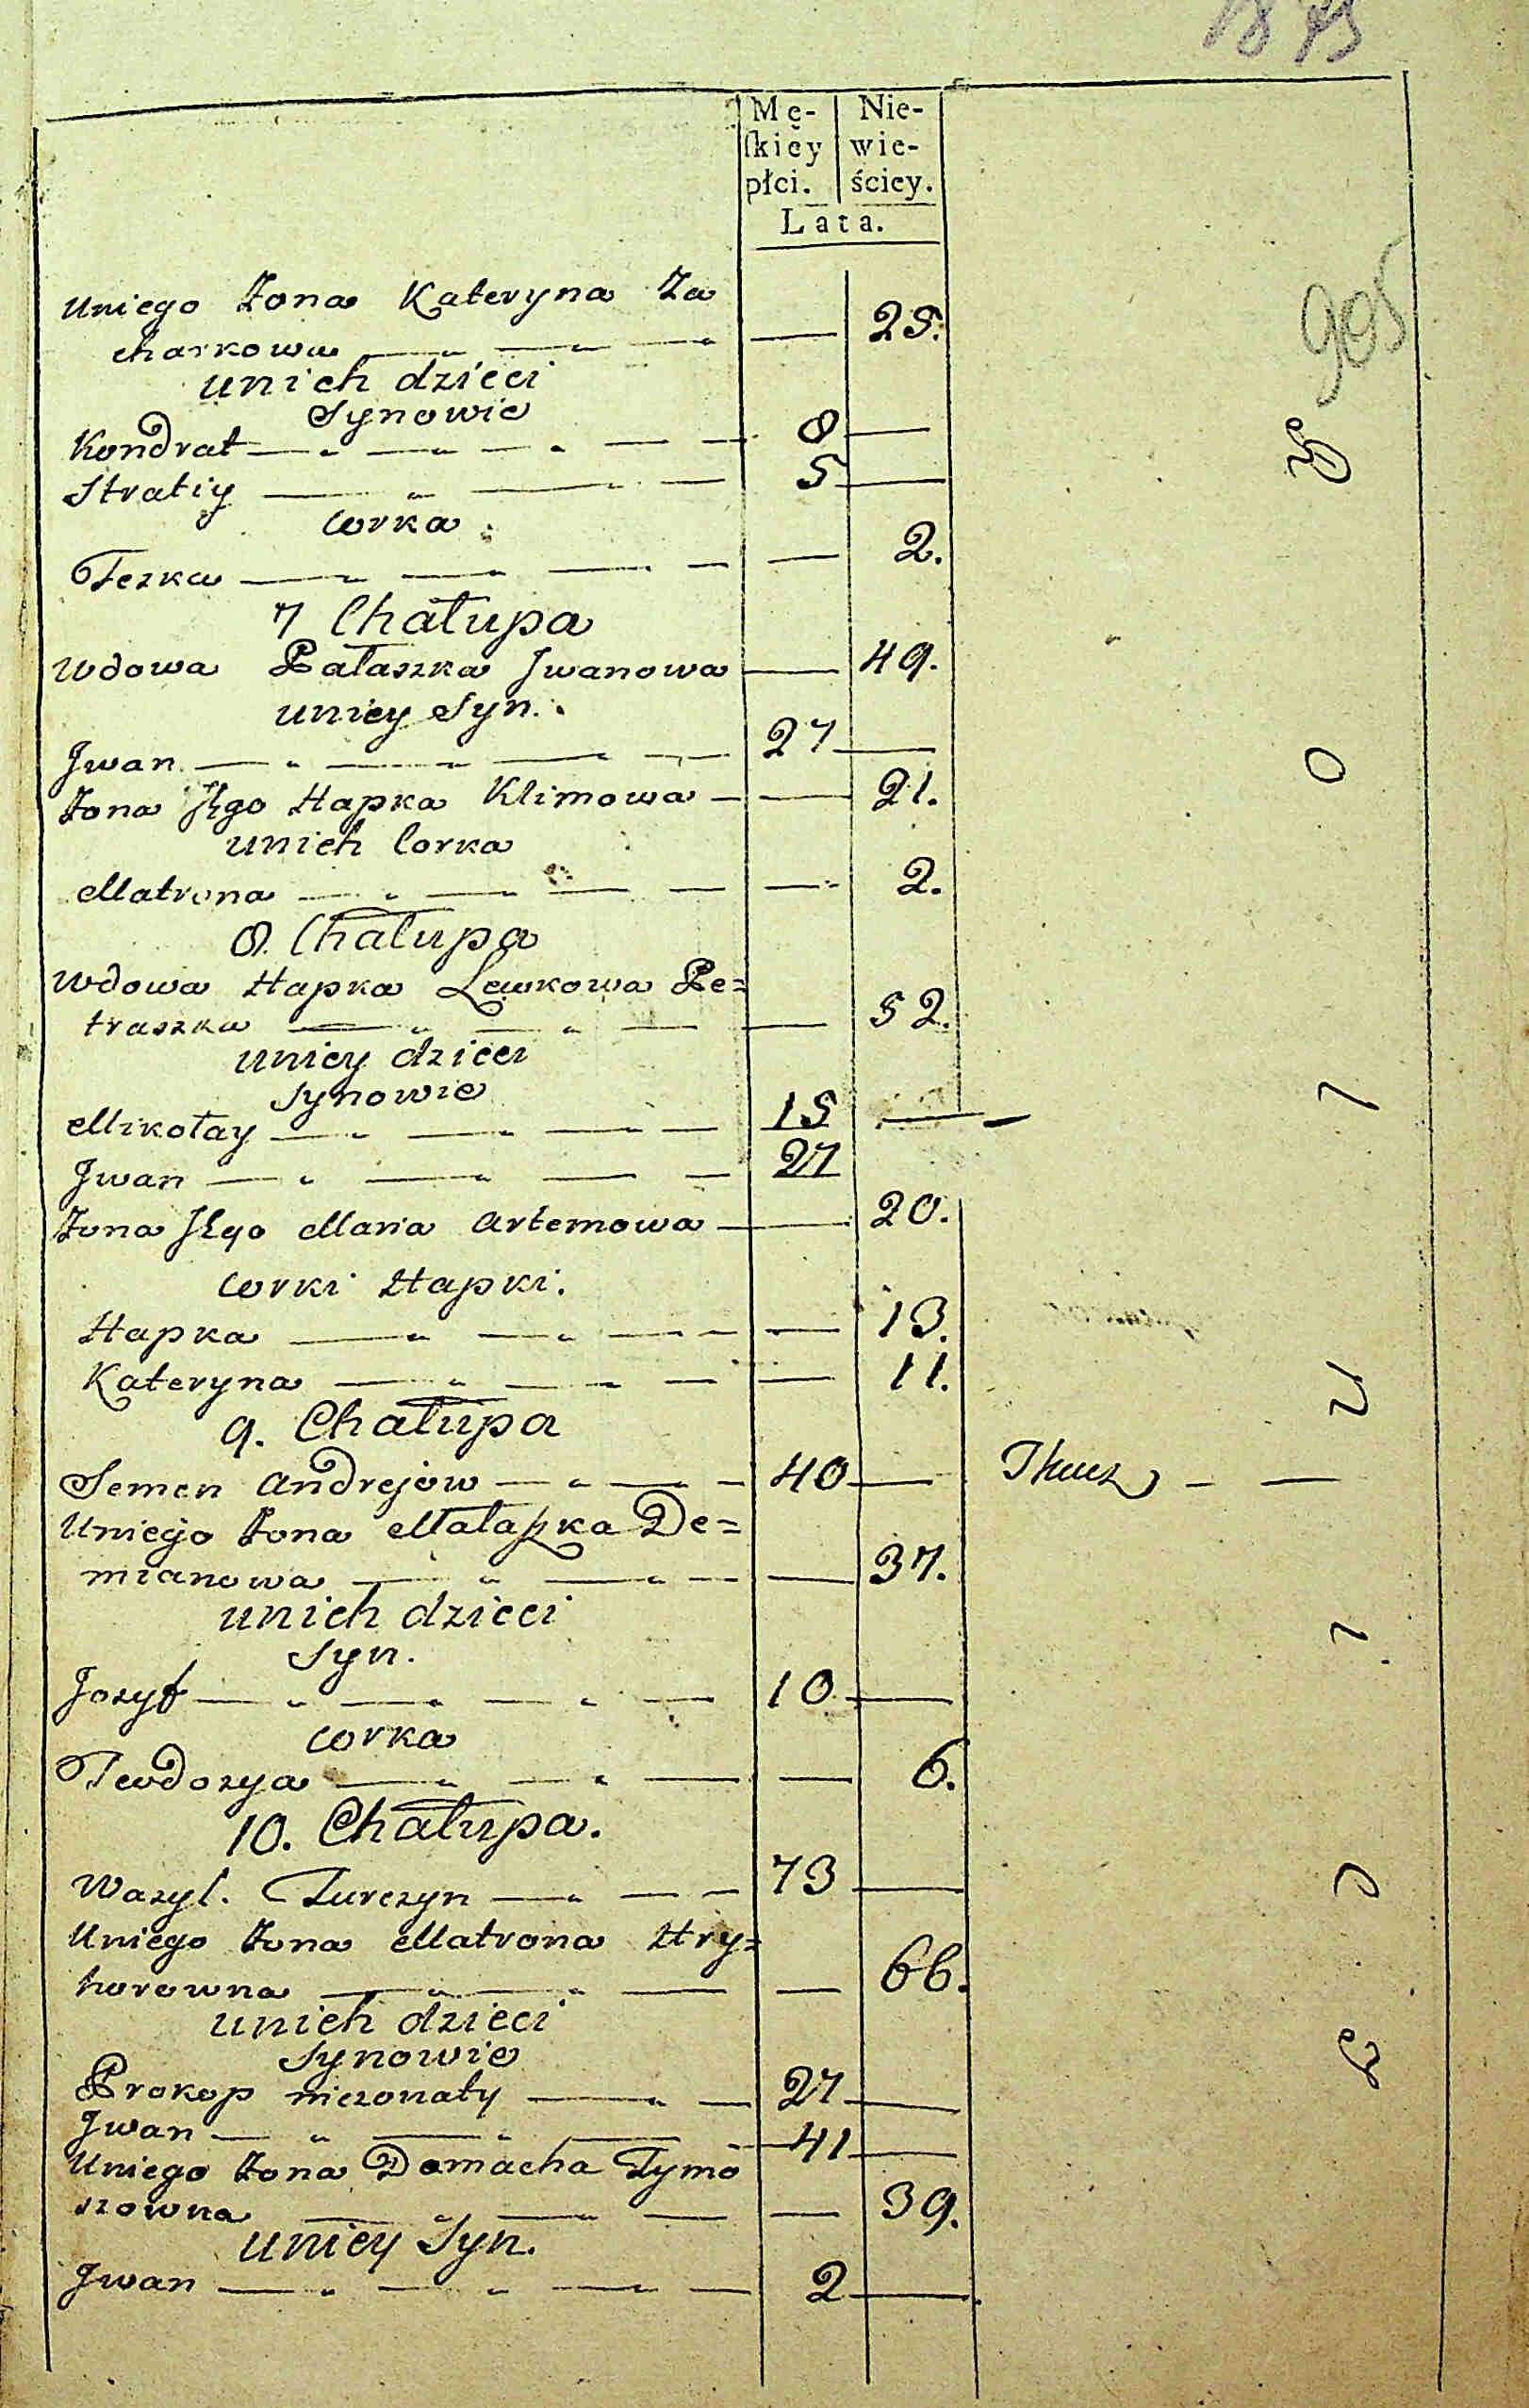 Mę- Nie-
ſkiey wie-
płci. ściey.
Lata.
905
Uniego Żona Kateryna Za
charkowa — 25.
unich dzieci
Synowie
Kondrat — 8 —
Stratiy — 5 —
Corka
Teska — 2.
7 Chałupa
Wdowa Pałaszka Jwanowa — 49.
uniey Syn.
Jwan — 27 —
Żona Jego Hapka Klimowa — 21.
unich Corka
Matrona — 2.
8. Chałupa
Wdowa Hapka Lewkowa Pe=
traszka — 52.
uniey dzieci
Synowie
Mikołay — 15 —
Jwan — 27
Żona Jego Maria Artemowa — 20.
Corki Hapki.
Hapka — 13.
Kateryna — 11.
9. Chałupa
Semen Andrejow — 40 — Tkacz — —
Uniego Żona Małaszka De=
mianowa — 37.
unich dzieci
Syn.
Jozyf — 10 —
Corka
Teodozya — 6.
10. Chałupa.
Wazyl. Turczyn — 73 —
Uniego Żona Matrona Hry=
horowna — 66.
unich dzieci
Synowie
Prokop niezonaty — 27 —
Jwan — 41 —
Uniego Żona Domacha Tymo
szowna — 39.
uniey Syn.
Jwan — 2 —